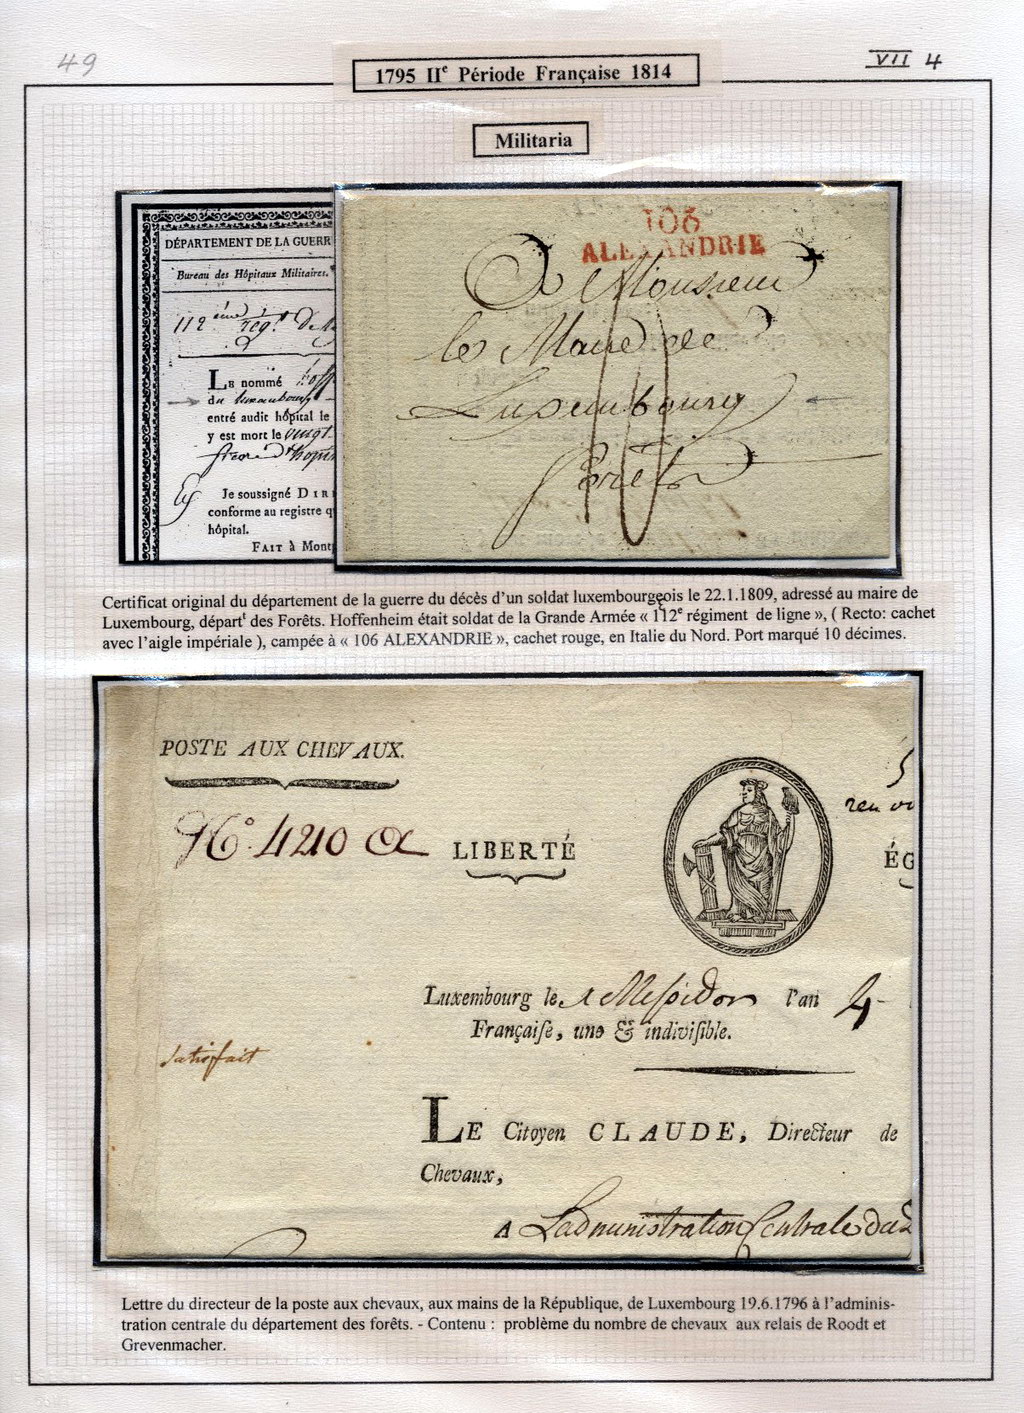 49
VII 4
1795 IIe Période Française 1814
Militaria
DÉPARTEMENT DE LA GUERR
Bureau des Hôpitaux Militaires.
112 ème rég.t De
LE nommé hoff
du luxembourg
entré audit hôpital le
y est mort le vingt
Je soussigné DIRE
conforme au registre q
hôpital.
FAIT à Mont
106
ALEXANDRIE
A Monsieur
le Maire de
Luxembourg
forêts
10
Certificat original du département de la guerre du décès d'un soldat luxembourgeois le 22.1.1809, adressé au maire de
Luxembourg, départt des Forêts. Hoffenheim était soldat de la Grande Armée « 112e régiment de ligne », ( Recto: cachet
avec l'aigle impériale ), campée à « 106 ALEXANDRIE », cachet rouge, en Italie du Nord. Port marqué 10 décimes.
POSTE AUX CHEVAUX.
N.o 420
LIBERTÉ
ÉG
Luxembourg le 1 Messidor l'an 4
Françaiſe, une & indiviſible.
satisfait
LE Citoyen CLAUDE, Directeur de
Chevaux,
A L'administration Centrale du
Lettre du directeur de la poste aux chevaux, aux mains de la République, de Luxembourg 19.6.1796 à l'adminis-
tration centrale du département des forêts. - Contenu : problème du nombre de chevaux aux relais de Roodt et
Grevenmacher.